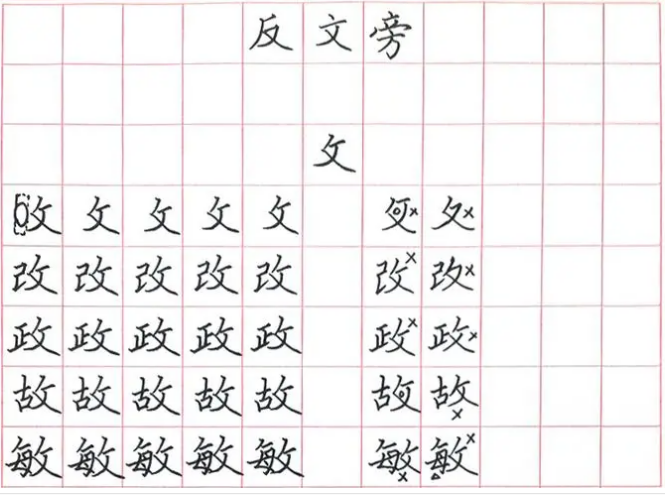 反文旁
攵
攵攵攵攵攵 攵×攵×
改改改改改 改×改×
政政政政政 政×政×
故故故故故 故故×
敏敏敏敏敏 敏×敏×